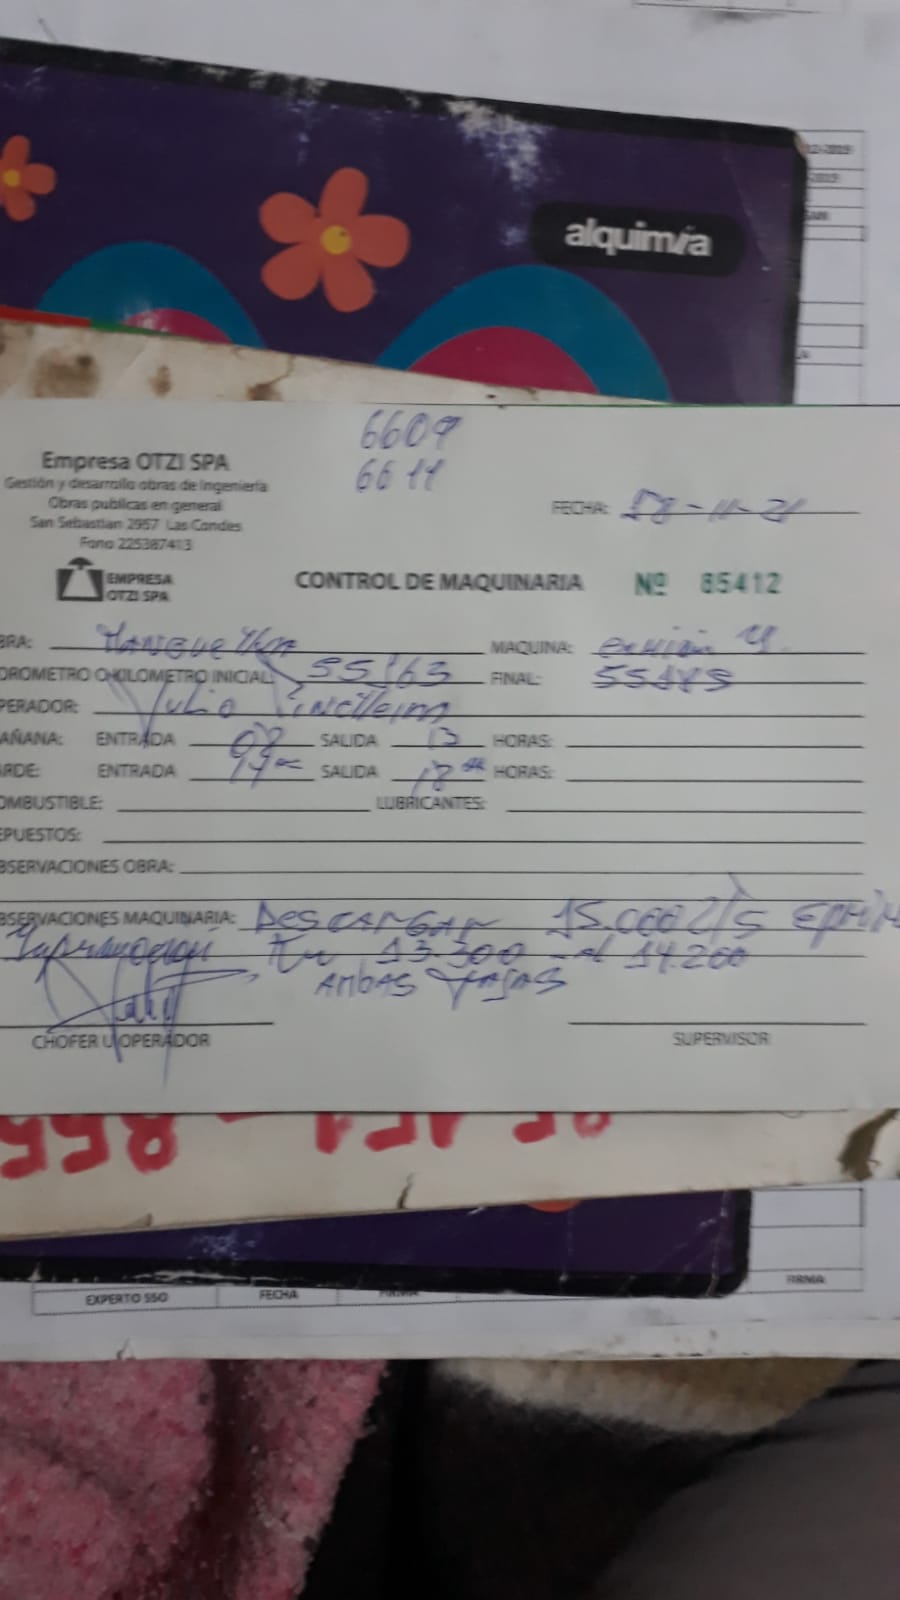 12-2019
-2019
alquimia
6609
6611
Empresa OTZI SPA
Gestión y desarrollo obras de Ingeniería
Obras publicas en general
San Sebastian 2957 Las Condes
Fono 225387413
FECHA: 18-11-21
EMPRESA
OTZI SPA
CONTROL DE MAQUINARIA Nº 85412
BRA: MAQUINA:
OROMETRO O KILOMETRO INICIAL: 55163 FINAL: 55189
PERADOR: Julio
AÑANA: ENTRADA 08 SALIDA 13 HORAS:
ARDE: ENTRADA 14 SALIDA 18 HORAS:
OMBUSTIBLE: LUBRICANTES:
EPUESTOS:
BSERVACIONES OBRA:
BSERVACIONES MAQUINARIA: DESCARGAR 15.000
13.300 - al 14.200
AMBAS
CHOFER U OPERADOR SUPERVISOR
EXPERTO SSO FECHA FIRMA
FIRMA